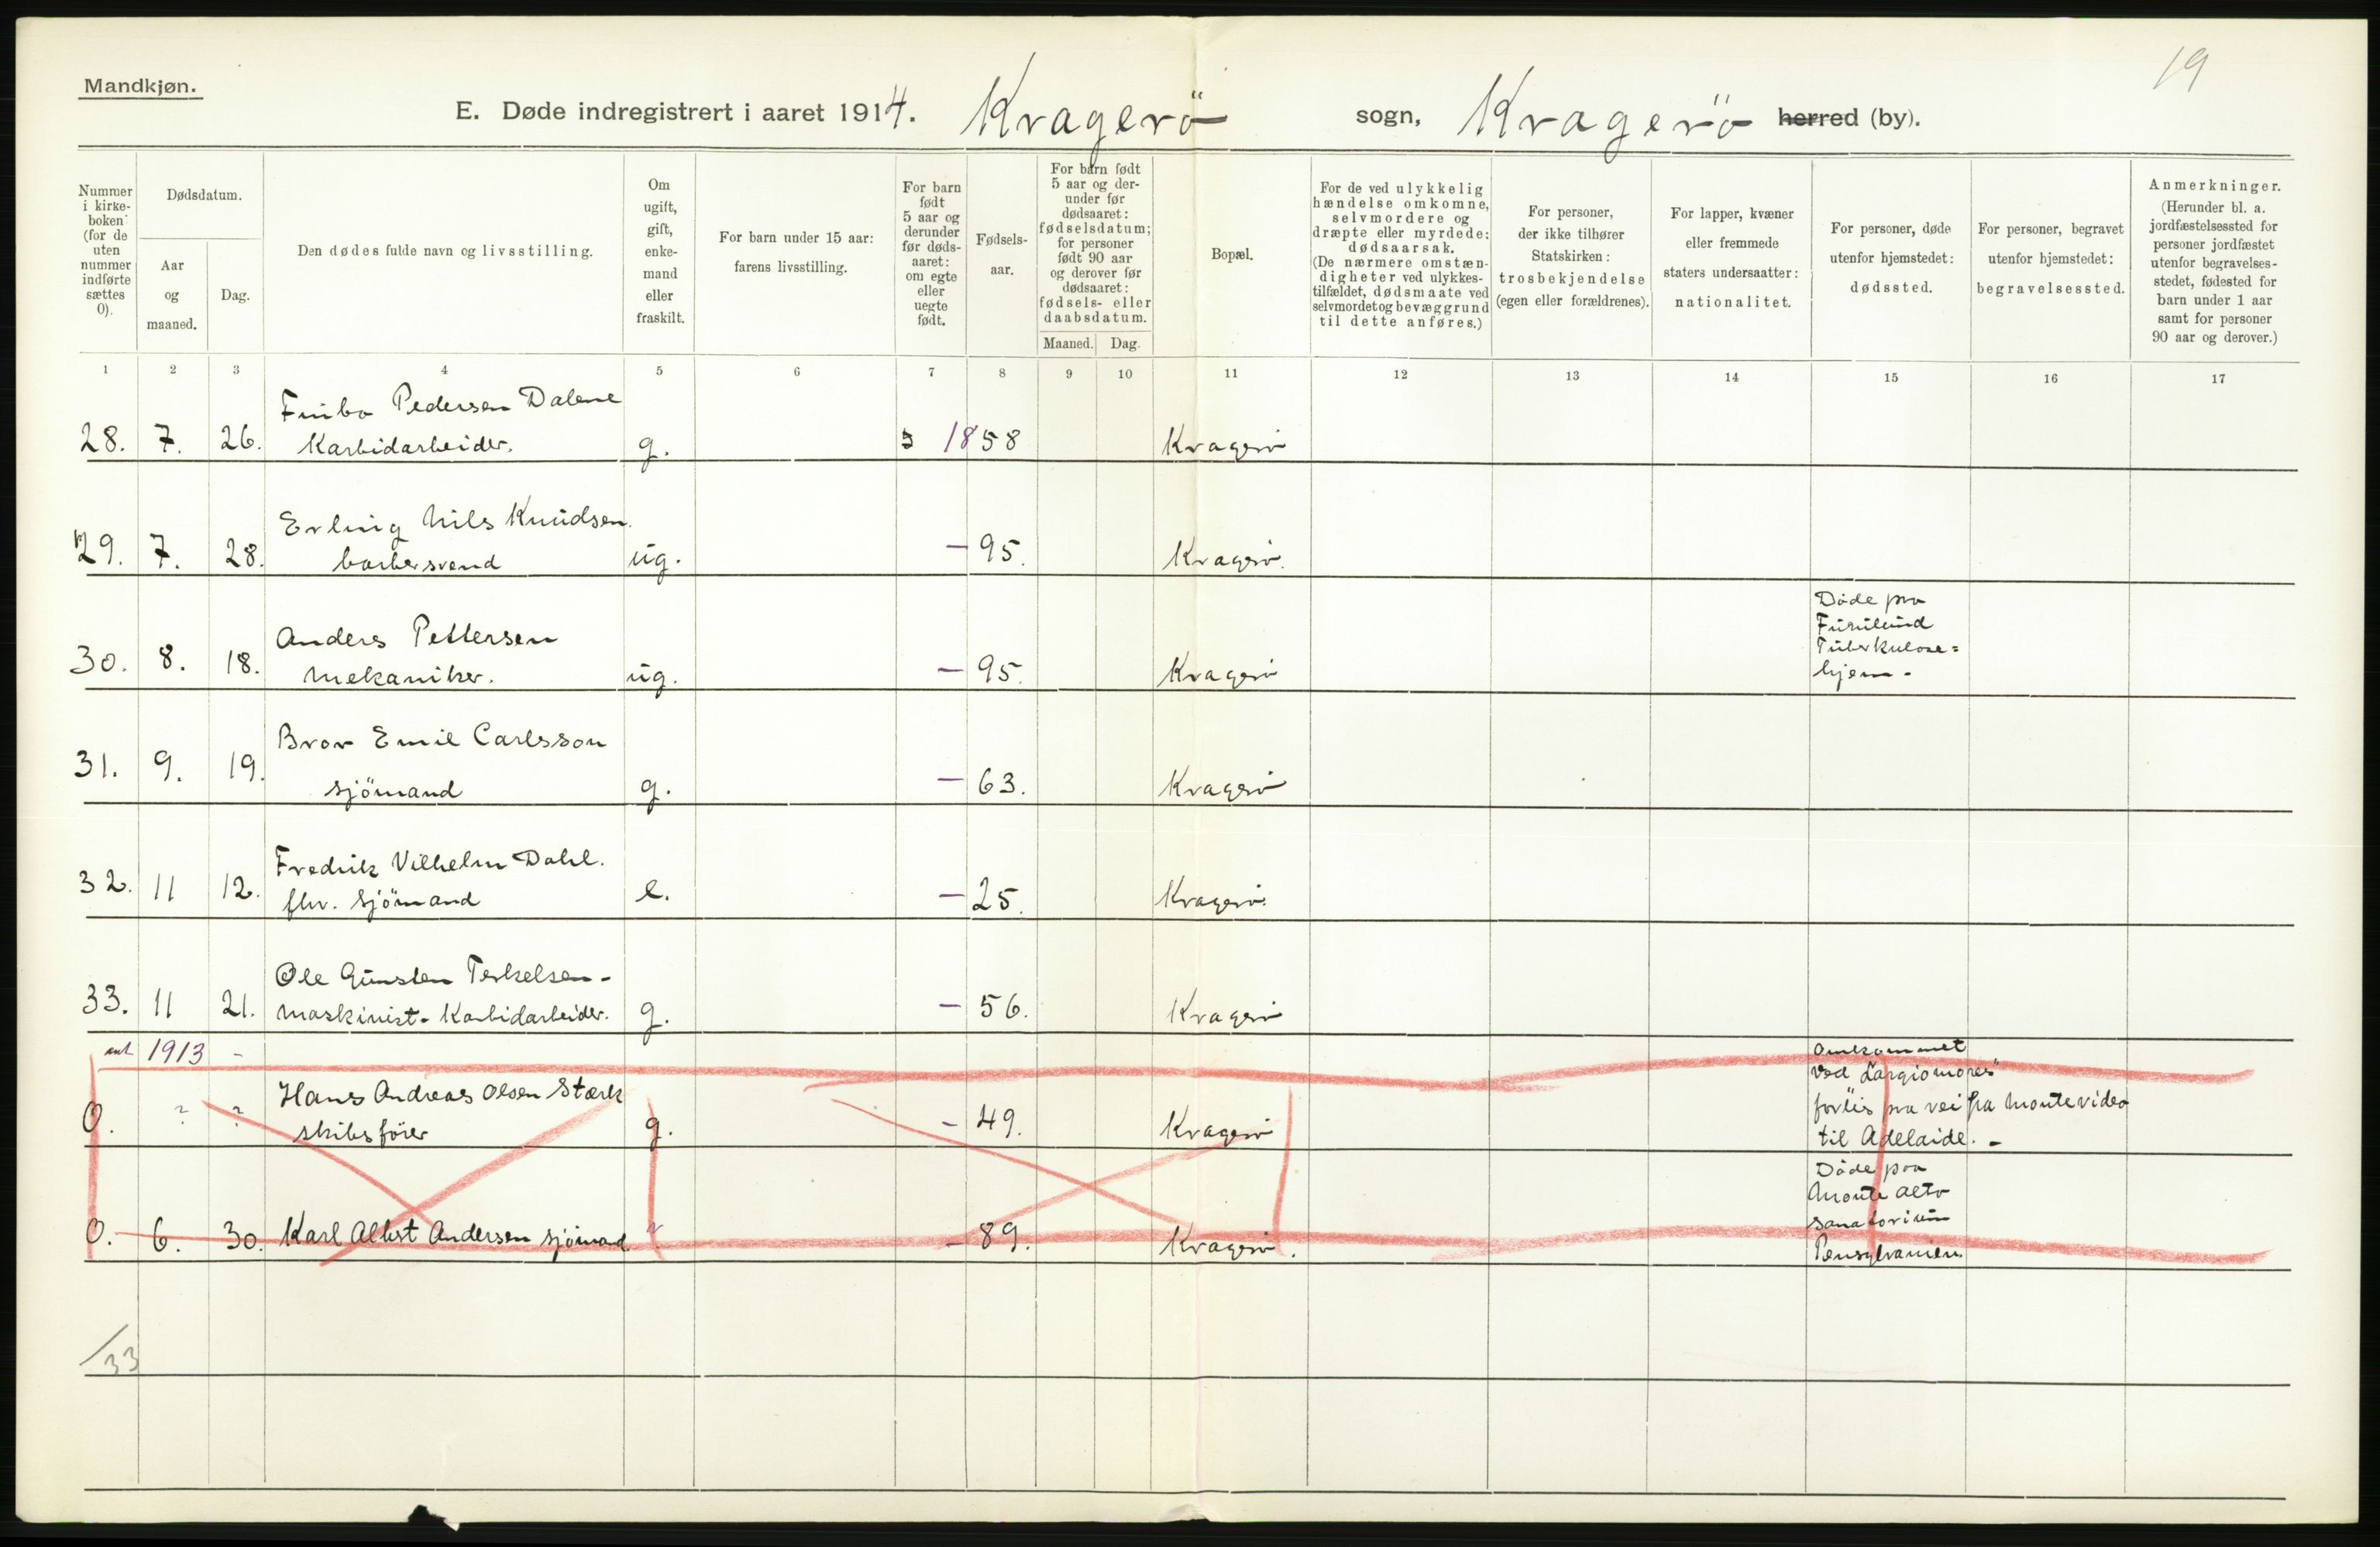 19
Mandkjøn.
E. Døde indregistrert i aaret 1914. Kragerö sogn, Kragerö herred (by).
Nummer i kirkeboken (for de uten nummer indførte sættes 0).
Dødsdatum.
Aar og maaned.
Dag.
Den dødes fulde navn og livsstilling.
Om ugift, gift, enkemand eller fraskilt.
For barn under 15 aar: farens livsstilling.
For barn født 5 aar og derunder før dødsaaret: om egte eller uegte født.
Fødselsaar.
For barn født 5 aar og derunder før dødsaaret: fødselsdatum; for personer født 90 aar og derover før dødsaaret: fødsels- eller daabsdatum.
Maaned. Dag.
Bopæl.
For de ved ulykkelig hændelse omkomne, selvmordere og dræpte eller myrdede: dødsaarsak. (De nærmere omstændigheter ved ulykkestilfældet, dødsmaate ved selvmordet og bevæggrund til dette anføres.)
For personer, der ikke tilhører Statskirken: trosbekjendelse (egen eller forældrenes).
For lapper, kvæner eller fremmede staters undersaatter: nationalitet.
For personer, døde utenfor hjemstedet: dødssted.
For personer, begravet utenfor hjemstedet: begravelsessted.
Anmerkninger. (Herunder bl. a. jordfæstelsessted for personer jordfæstet utenfor begravelsesstedet, fødested for barn under 1 aar samt for personer 90 aar og derover.)
1 2 3 4 5 6 7 8 9 10 11 12 13 14 15 16 17
Pedersen Dalene
28. 7. 26. Karbidarbeider. g. 1858 Kragerö
Erling Nils Knudsen.
29. 7. 28. barbersvend ug. — 95. Kragerö.
Anders Pettersen
30. 8. 18. mekaniker. ug. — 95. Kragerö
Döde paa
Furulund
Tuberkulose=
hjem.
Bror Emil Carlsson
31. 9. 19. sjömand g. — 63. Kragerö
Fredrik Vilhelm Dahl.
32. 11 12. fhv. sjömand e. — 25. Kragerö.
Ole Gunsten Terkelsen-
33. 11 21. maskinist- Karbidarbeider. g. — 56. Kragerö
ant 1913 -
Hans Andreas Olsen Stærk
0. ? ? skibsförer g. - 49. Kragerö
Omkommet
ved
forlis paa vei fra Montevideo
til Adelaide. -
0. 6. 30. Karl Albert Andersen sjömand ? - 89. Kragerö.
Döde paa
Monte Alto
Sanatorium
Pensylvanien
33